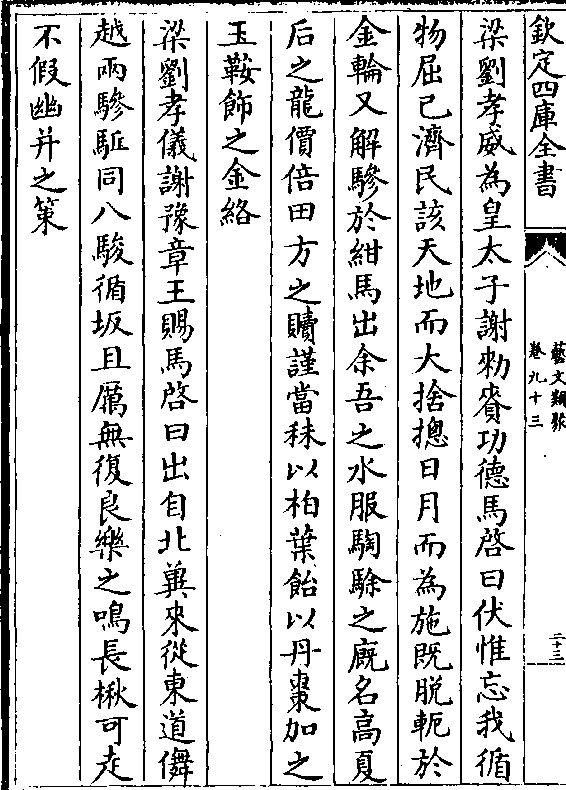 欽定四庫全書
藝文類聚
卷九十三
二十三
梁劉孝威為皇太子謝勑賚功德馬啓曰伏惟忘我循
物屈己濟民該天地而大捨揔日月而為施既脱軛於
金輪又解驂於紺馬出余吾之水服騊駼之廐名高夏
后之龍價倍田方之贖謹當秣以柏葉飴以丹棗加之
玉鞍飾之金絡
梁劉孝儀謝豫章王賜馬啓曰出自北冀來從東道儛
越兩驂駈同八駿循坂且厲無復良樂之鳴長楸可走
不假幽并之策